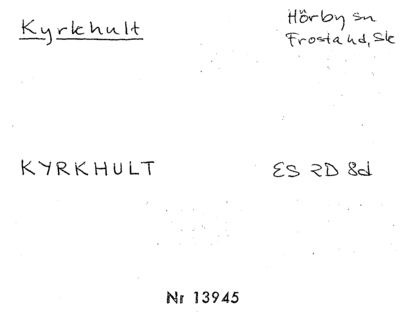 Kyrkhult
Hörby sn
Frosta hd, Sk
KYRKHULT
ES 2D 8d
Nr 13945